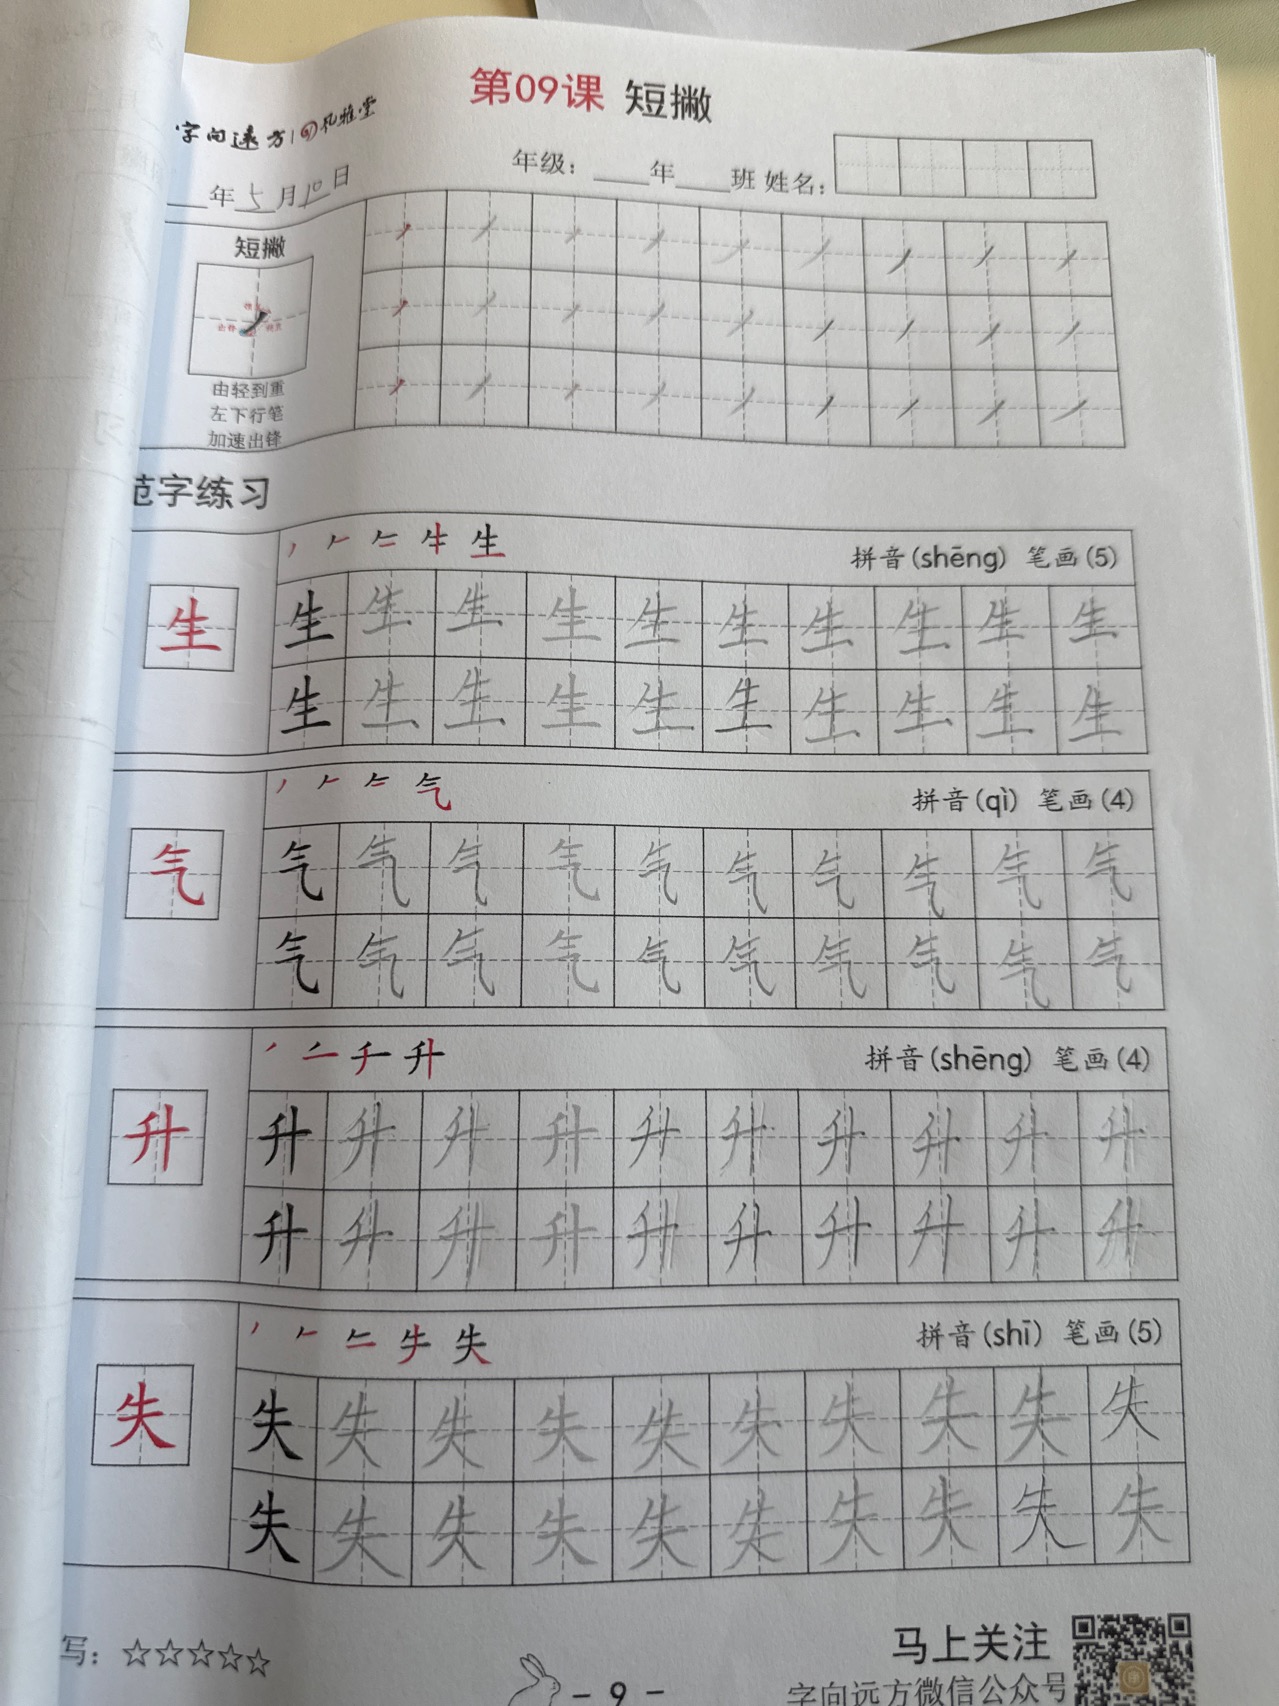 第09课 短撇
字向远方 孔雅堂
年5月10日 年级：____年____班 姓名：
短撇
由轻到重
左下行笔
加速出锋
范字练习
生 拼音(shēng) 笔画(5)
生 生 生 生 生 生 生 生 生 生 生
生 生 生 生 生 生 生 生 生 生
气 拼音(qì) 笔画(4)
气 气 气 气 气 气 气 气 气 气 气
气 气 气 气 气 气 气 气 气 气
升 拼音(shēng) 笔画(4)
升 升 升 升 升 升 升 升 升 升 升
升 升 升 升 升 升 升 升 升 升
失 拼音(shī) 笔画(5)
失 失 失 失 失 失 失 失 失 失 失
失 失 失 失 失 失 失 失 失 失
写：☆☆☆☆☆
马上关注
字向远方微信公众号
- 9 -